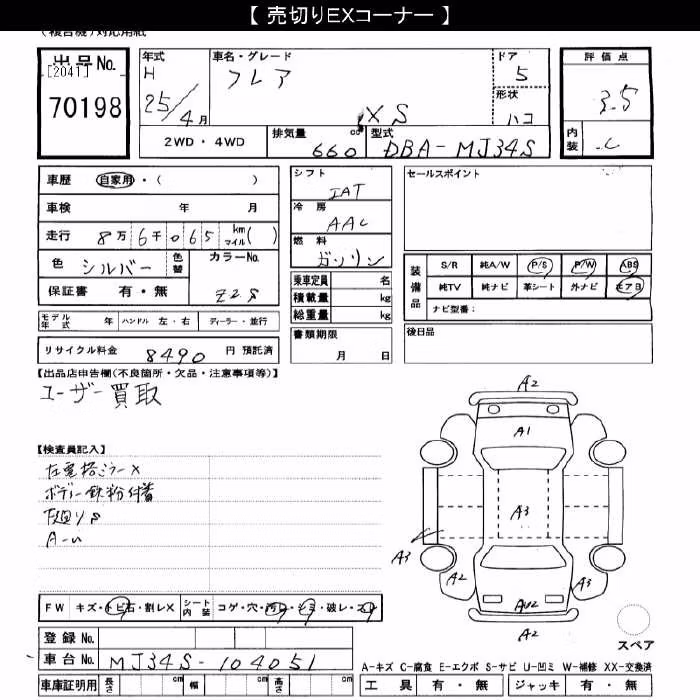 【 売切りEXコーナー 】
(複合機)対応用紙
出品No.
[2041]
70198
年式
H
25/4月
車名・グレード
フレア
XS
ドア
5
形状
ハコ
評価点
3.5
内装
C
2WD・4WD
排気量
660
cc
型式
DBA-MJ34S
車歴 自家用・( )
車検 年 月
走行 8万6千065 km マイル( )
色 シルバー 色替 カラーNo.
Z2S
保証書 有・無
モデル年式 年 ハンドル 左・右 ディーラー・並行
リサイクル料金 8490 円 預託済
シフト
IAT
冷房
AAC
燃料
ガソリン
乗車定員 名
積載量 kg
総重量 kg
書類期限
月 日
セールスポイント
装備品
S/R 純A/W P/S P/W ABS
純TV 純ナビ 革シート 外ナビ エアB
ナビ型番:
後日品
【出品店申告欄(不良箇所・欠品・注意事項等)】
ユーザー買取
【検査員記入】
左電格ミラーX
ボディー鉄粉付着
下廻りS
A-U
FW キズ・トビ石・割レX シート内装 コゲ・穴・汚レ・シミ・破レ・スレ
登録No.
車台No. MJ34S-104051
車庫証明用 長さ cm 幅 cm 高さ cm
A2
A1
A3
A3
A2
A3
AU2
A2
スペア
A-キズ C-腐食 E-エクボ S-サビ U-凹ミ W-補修 XX-交換済
工具 有・無 ジャッキ 有・無